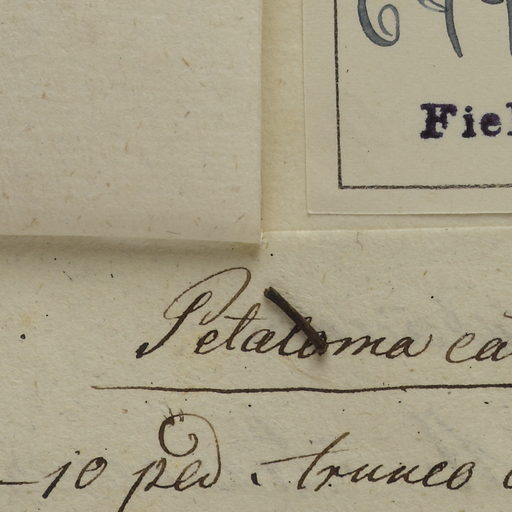 Fiel
Petaloma ca
10 ped. trunco